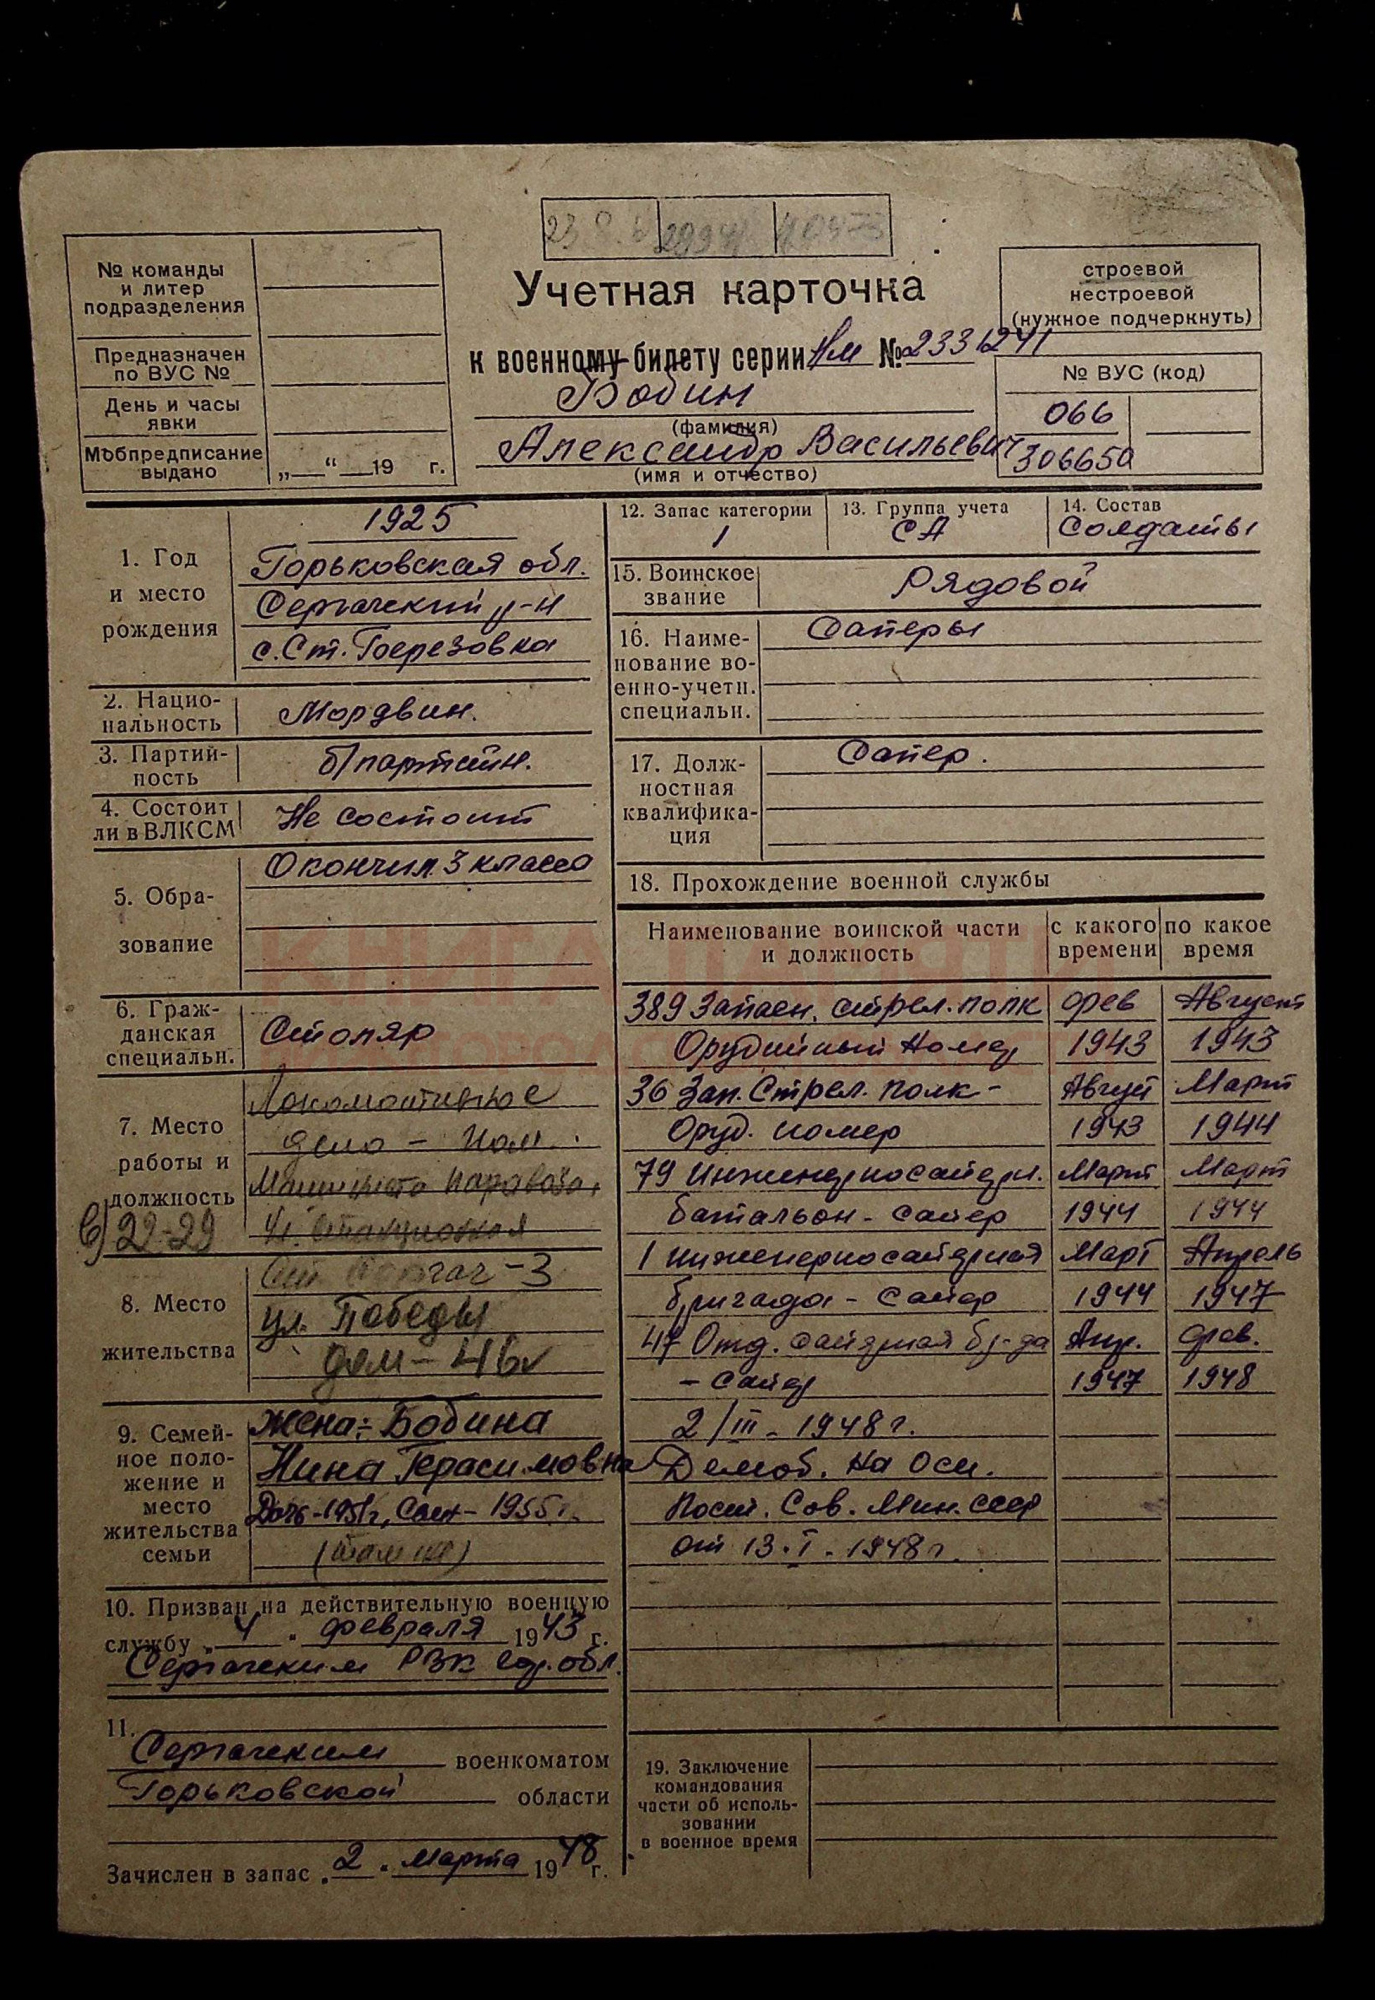 № команды
и литер
подразделения
Предназначен
по ВУС №
День и часы
явки
Мобпредписание
выдано „ “ 19 г.
Учетная карточка
к военному билету серии НМ № 2331241
Бобин
(фамилия)
Александр Васильевич
(имя и отчество)
строевой
нестроевой
(нужное подчеркнуть)
№ ВУС (код)
066
306650
1. Год
и место
рождения
1925
Горьковская обл.
Сергачский р-н
с. Ст. Березовка
2. Нацио-
нальность
Мордвин.
3. Партий-
ность
б/партийн.
4. Состоит
ли в ВЛКСМ
Не состоит
5. Обра-
зование
Окончил 3 класса
6. Граж-
данская
специальн.
Столяр
7. Место
работы и
должность
22-29
Локомотивное
депо - пом.
машиниста паровоза,
8. Место
жительства
Сергач-3
ул. Победы
дом - 46
9. Семей-
ное поло-
жение и
место
жительства
семьи
жена:- Бобина
Нина Герасимовна
Дочь-1951г, Сын-1955г.
(там же)
10. Призван на действительную военную
службу „4“ февраля 1943 г.
Сергачским РВК Гор. обл.
11.
Сергачским военкоматом
Горьковской области
Зачислен в запас „2“ марта 1948 г.
12. Запас категории
1
13. Группа учета
СА
14. Состав
Солдаты
15. Воинское
звание
Рядовой
16. Наиме-
нование во-
енно-учетн.
специальн.
Саперы
17. Долж-
ностная
квалифика-
ция
Сапер.
18. Прохождение военной службы
Наименование воинской части
и должность
с какого
времени
по какое
время
389 Запасн. стрел. полк Фев Август
Орудийный номер 1943 1943
36 Зап. Стрел. полк - Август Март
Оруд. номер 1943 1944
79 Инженерносаперн. Март Март
батальон - сапер 1944 1944
1 инженерносаперная Март Апрель
бригада - сапер 1944 1947
47 Отд. саперная бр-да Апр. Фев.
- сапер 1947 1948
2/III - 1948г.
Демоб. на Осн.
Пост. Сов. Мин. СССР
от 13.I.1948г.
19. Заключение
командования
части об исполь-
зовании
в военное время
КНИГА ПАМЯТИ